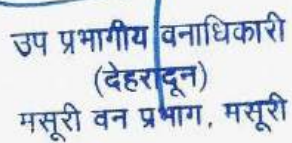 उप प्रभागीय वनाधिकारी
(देहरादून)
मसूरी वन प्रभाग, मसूरी